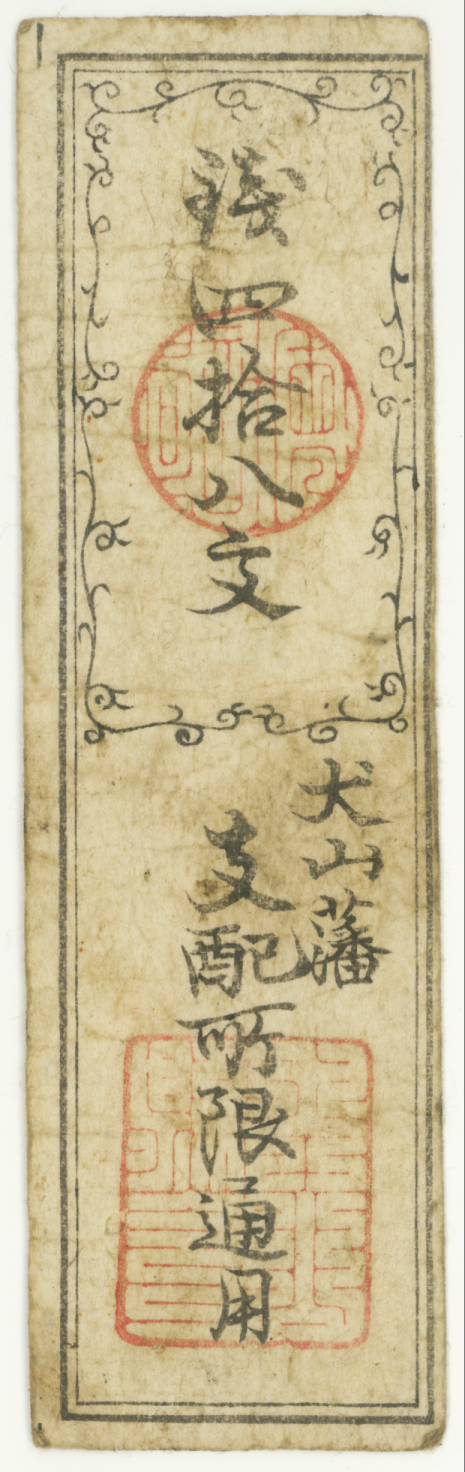 錢四拾八文
犬山藩
支配所限通用